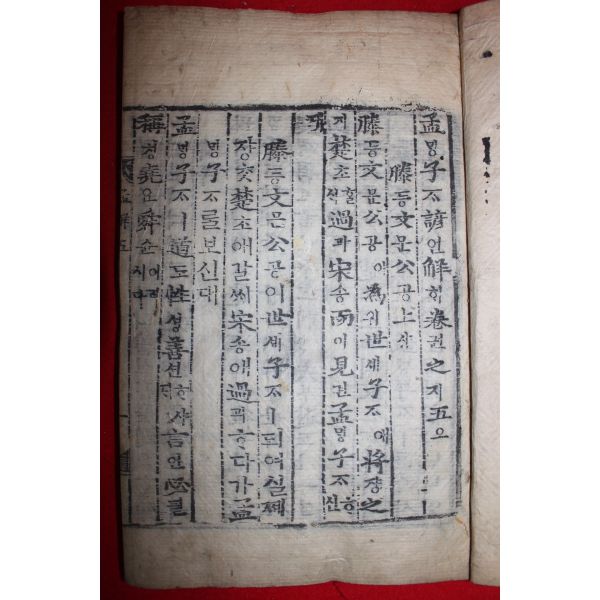 孟ᄆᆡᆼ子ᄌᆞ諺언解ᄒᆡ卷권之지五오
滕등文문公공上샹
滕등文문公공이爲위世셰子ᄌᆞ애將쟝之
지楚초ᄒᆞᆯᄉᆡ過과宋송而이見견孟ᄆᆡᆼ子ᄌᆞᄒᆞ신
滕등文문公공이世셰子ᄌᆞㅣ되여실제
쟝ᄎᆞᆺ楚초애갈ᄉᆡ宋송애過과ᄒᆞ다가孟
ᄆᆡᆼ子ᄌᆞᄅᆞᆯ보신대
孟ᄆᆡᆼ子ᄌᆞㅣ道도性셩善션ᄒᆞ샤ᄃᆡ言언必필
稱칭堯요舜슌이러시다